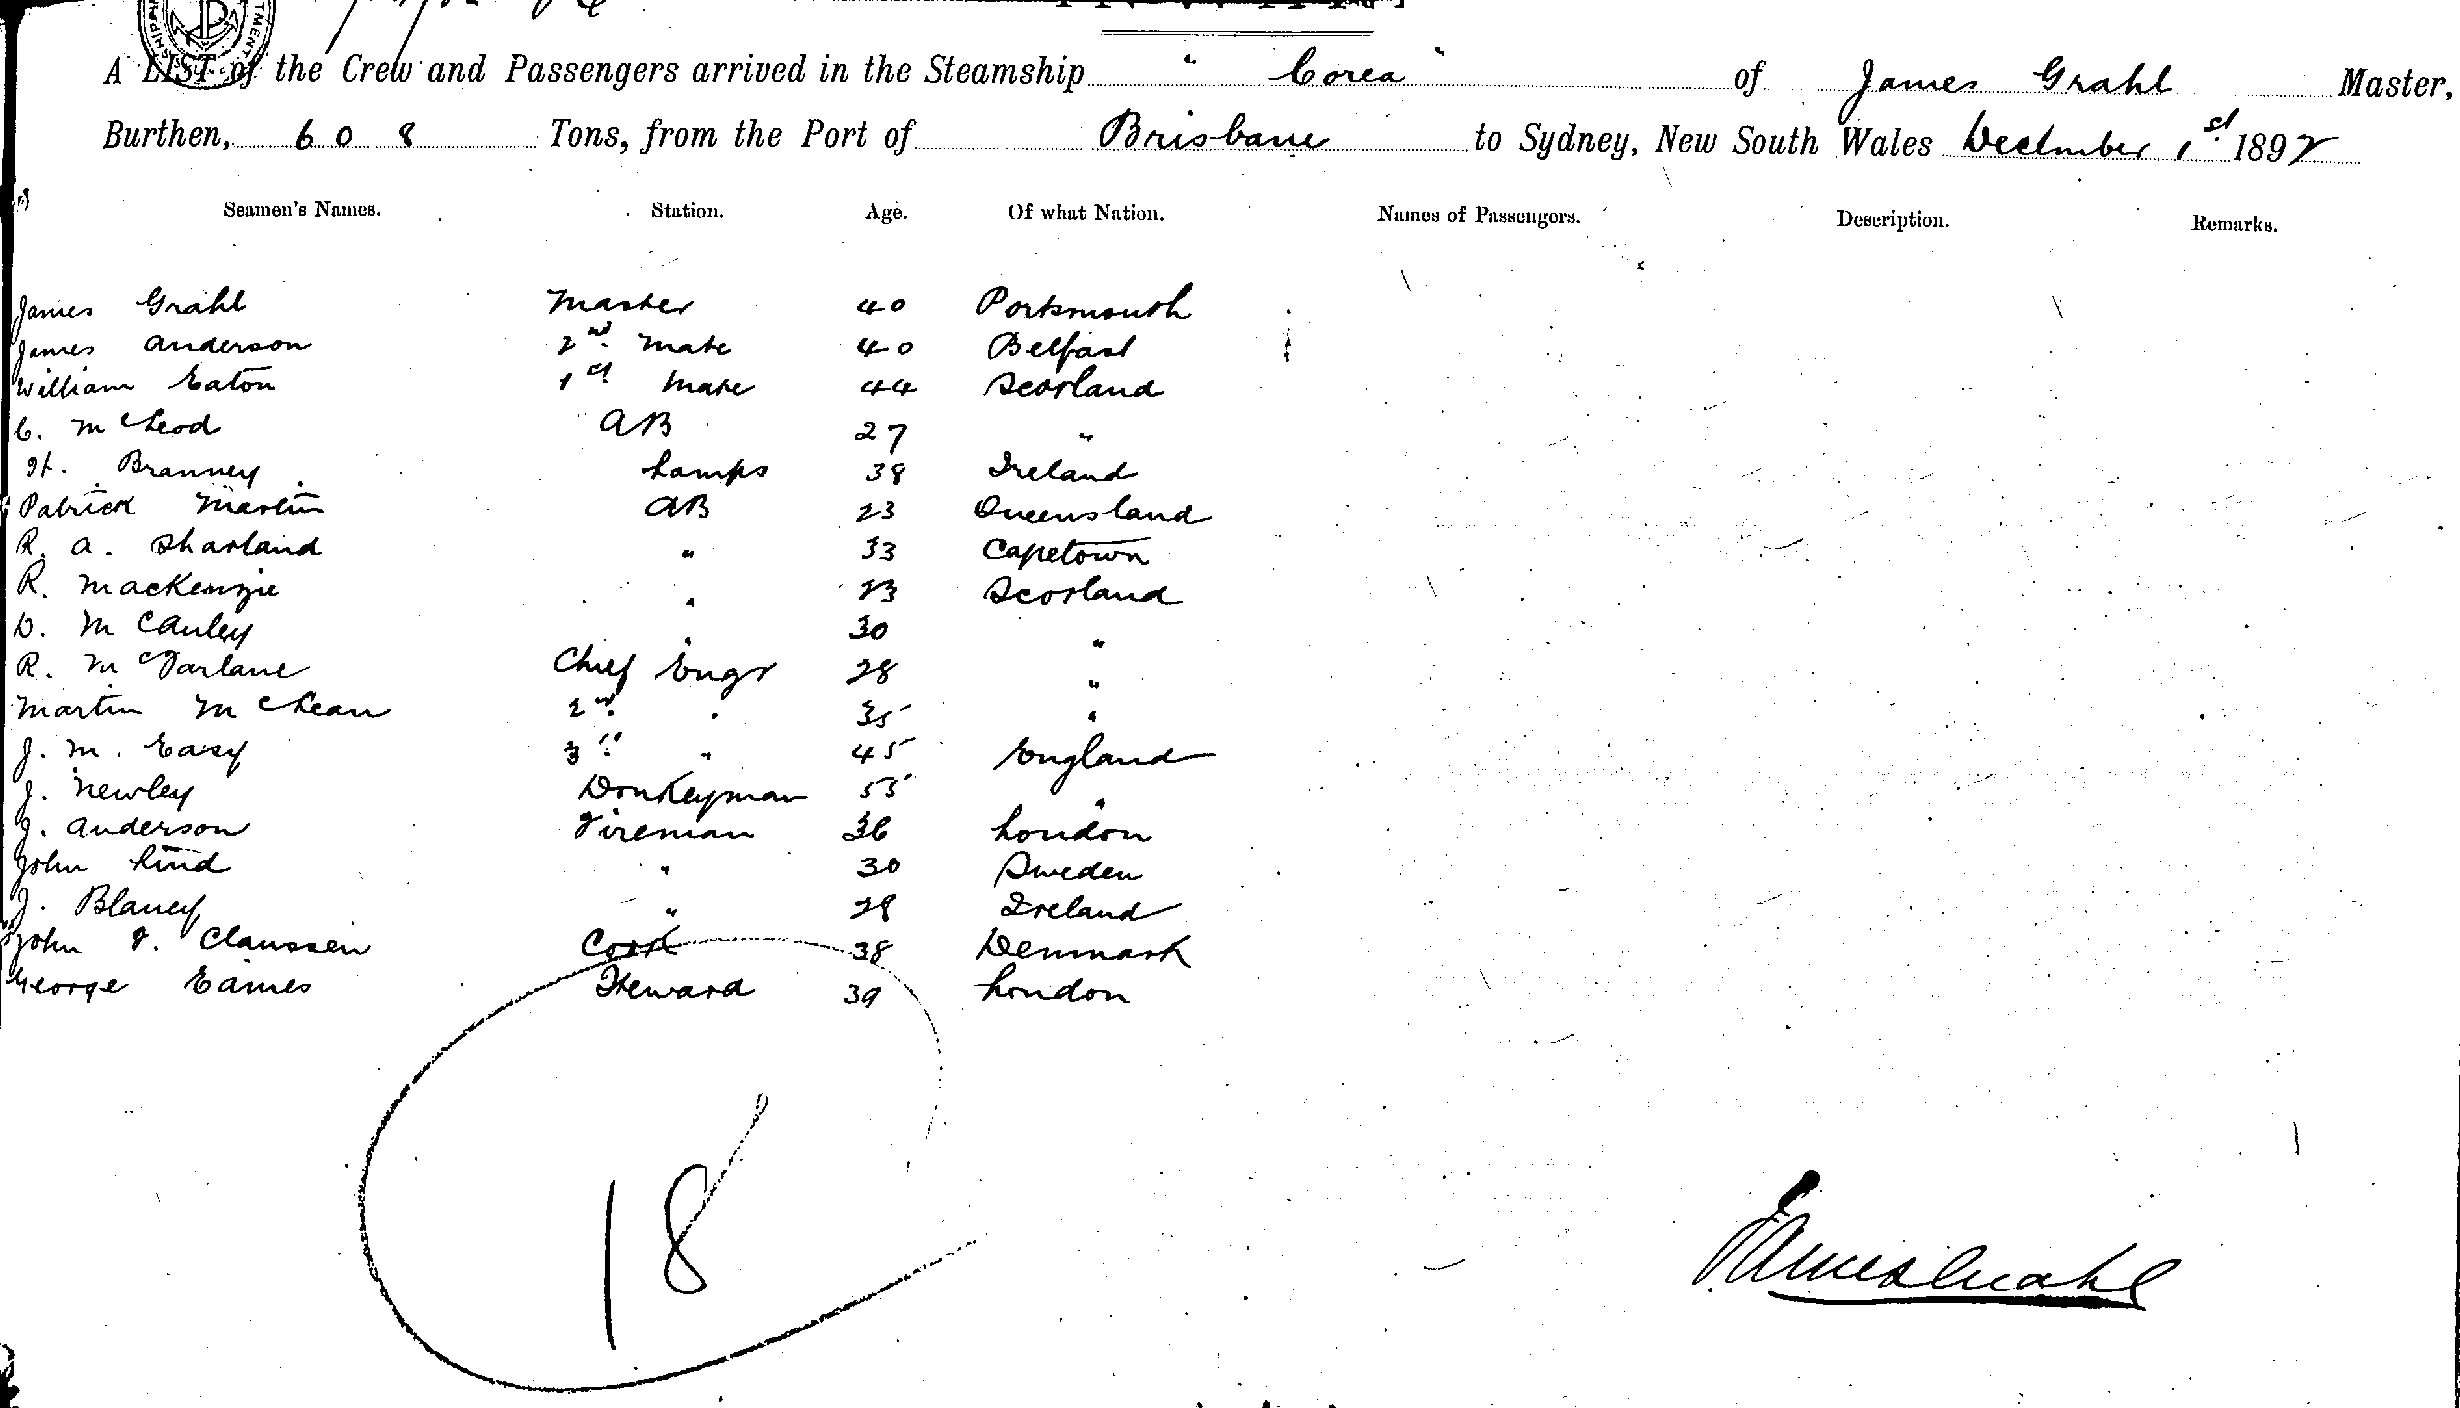 A LIST of the Crew and Passengers arrived in the Steamship "Corea" of James Grahl Master,
Burthen, 608 Tons, from the Port of Brisbane to Sydney, New South Wales December 1st 1892
Seamen's Names. Station. Age. Of what Nation. Names of Passengers. Description. Remarks.
James Grahl Master 40 Portsmouth
James Anderson 2nd Mate 40 Belfast
William Eaton 1st Mate 44 Scotland
C. McLeod AB 27 "
H. Branney Lamps 38 Ireland
Patrick Martin AB 23 Queensland
R. A. Sharland " 33 Capetown
R. MacKenzie " 23 Scotland
D. McAuley " 30 "
R. McFarlane Chief Engr 28 "
Martin McLean 2nd " 35 "
J. M. Easy 3" " 45 England
J. Newley Donkeyman 53 "
J. Anderson Fireman 36 London
John Lind " 30 Sweden
J. Blaney " 29 Ireland
John F. Claussen Cook 38 Denmark
George Eames Steward 39 London
18
James Grahl